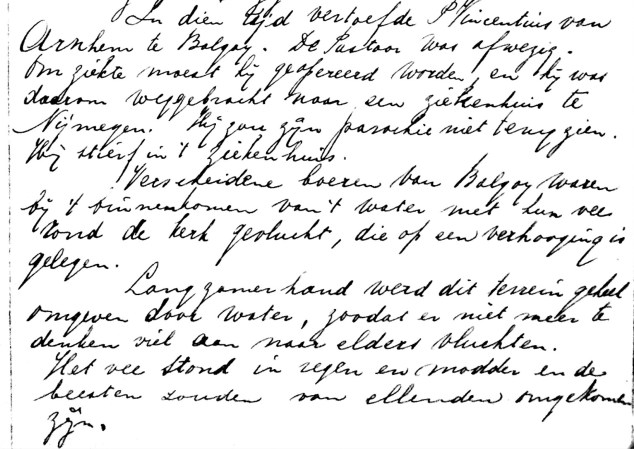 In dien tijd vertoefde P. Vincentius van
Arnhem te Balgoy. De Pastoor was afwezig.
Om ziekte moest hij geopereerd worden, en hij was
daarom weggebracht naar een ziekenhuis te
Nijmegen. Hij zou zijn parochie niet terugzien.
Hij stierf in 't ziekenhuis.
Verscheidene boeren van Balgoy waren
bij 't binnenkomen van 't water met hun vee
rond de kerk gevlucht, die op een verhooging is
gelegen.
Langzamerhand werd dit terrein geheel
omgeven door water, zoodat er niet meer te
denken viel aan naar elders vluchten.
Het vee stond in regen en modder en de
beesten zouden van ellenden omgekomen
zijn.